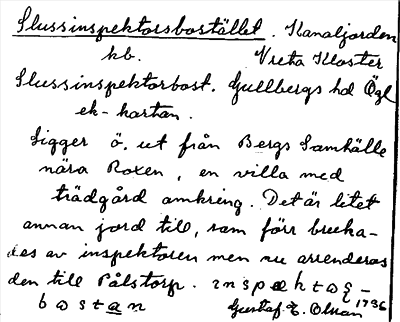 Slussinspektorsbostället. Kanaljorden
hb. Vreta Kloster
Slussinspektorbost. Gullbergs hd Ögl
ek-kartan.
Ligger ö. ut från Bergs Samhälle
nära Roxen, en villa med
trädgård omkring. Det är litet
annan jord till, som förr bruka-
des av inspektoren men nu arrenderas
den till Pålstorp.
bostan Gustaf E. Olsson 1936